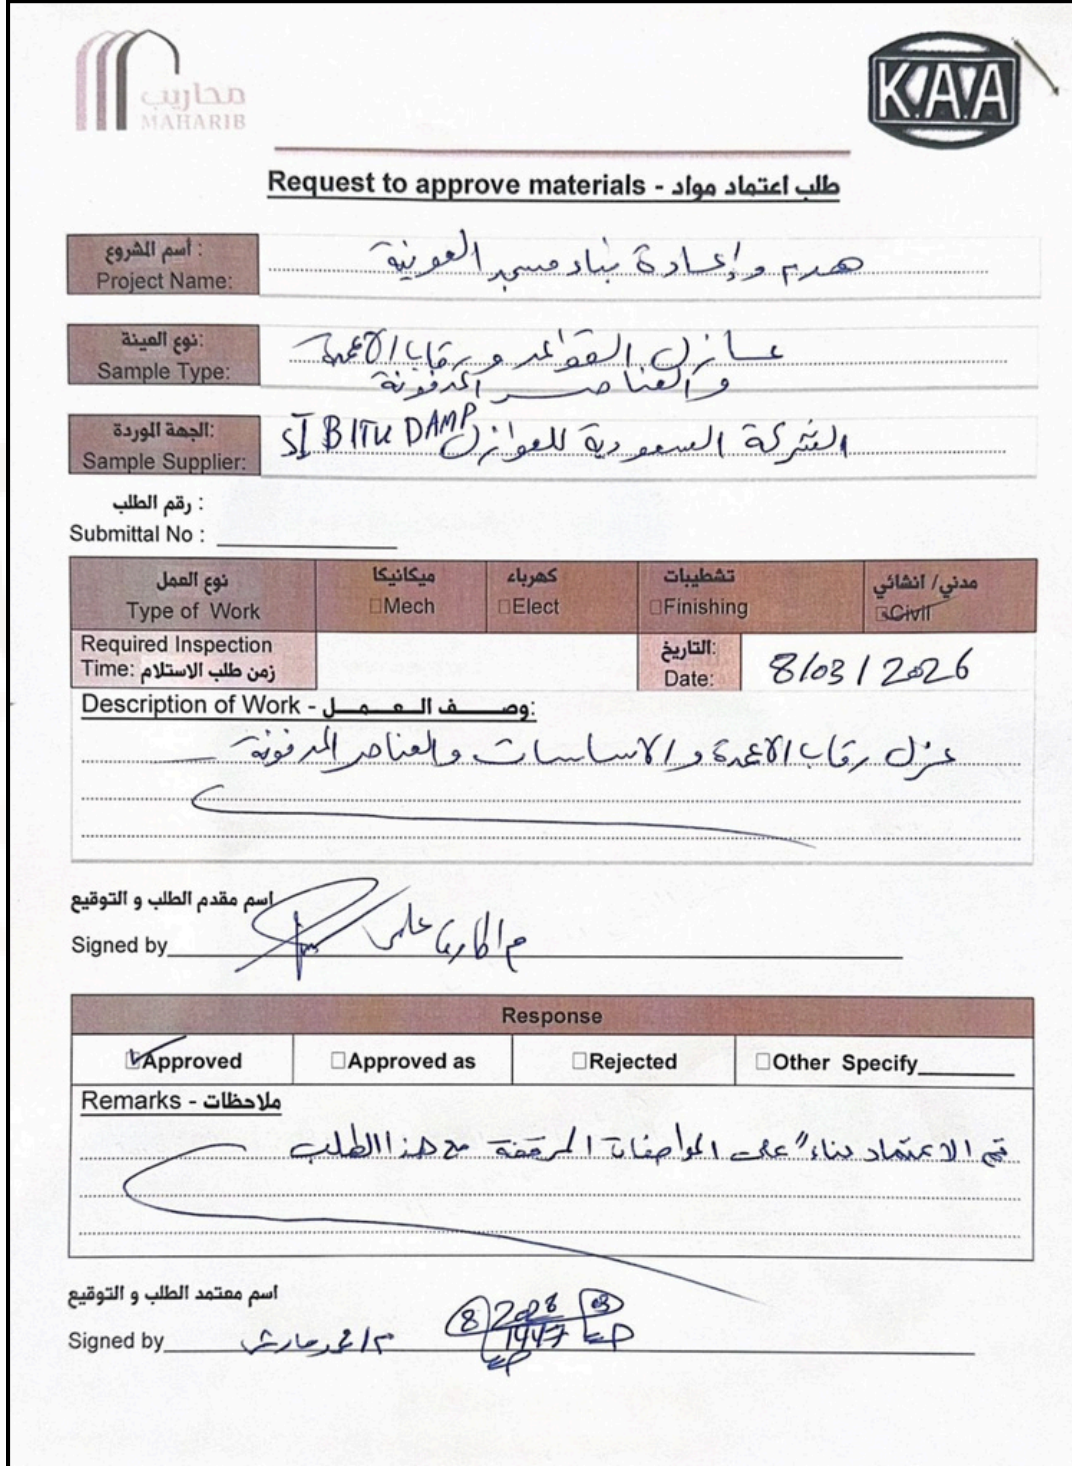 محاريب
MAHARIB
K.A.A
Request to approve materials - طلب اعتماد مواد
أسم المشروع :
Project Name:
هدم وإعادة بناء مسجد العوينية
نوع العينة:
Sample Type:
عازل القواعد ورقاب الاعمدة
والعناصر المدفونة
الجهة الموردة:
Sample Supplier:
الشركة السعودية للعوازل SI BITU DAMP
رقم الطلب :
Submittal No :
نوع العمل
Type of Work
ميكانيكا
Mech
كهرباء
Elect
تشطيبات
Finishing
مدني/ انشائي
Civil
Required Inspection
Time: زمن طلب الاستلام
التاريخ:
Date:
8/03/2026
Description of Work - وصف العمل:
عزل رقاب الاعمدة والاساسات والعناصر المدفونة
اسم مقدم الطلب و التوقيع
Signed by
Response
Approved
Approved as
Rejected
Other Specify
Remarks - ملاحظات
تم الاعتماد بناء" على المواصفات المرفقة مع هذا الطلب
اسم معتمد الطلب و التوقيع
Signed by
8
03
1447